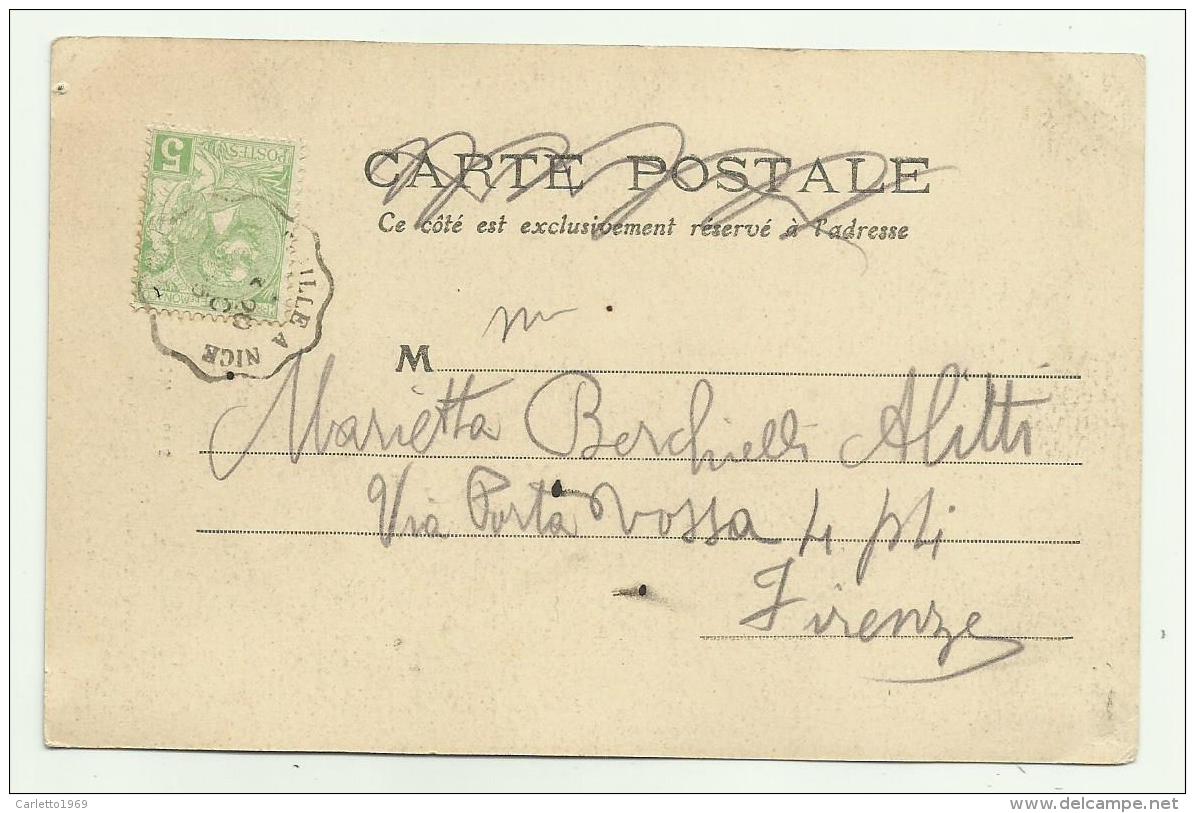 CARTE POSTALE
Ce côté est exclusivement réservé à l'adresse
5
POSTES
ILLE A NICE
M
Marietta Berchielli Alitti
Via Porta rossa 4 p4i
Firenze
Carletto1969
www.delcampe.net